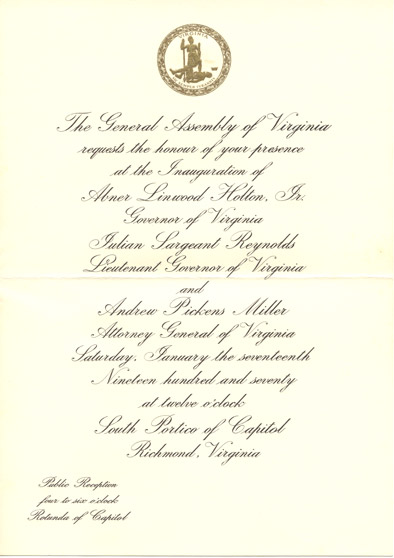 VIRGINIA
The General Assembly of Virginia
requests the honour of your presence
at the Inauguration of
Abner Linwood Holton, Jr.
Governor of Virginia
Julian Sargeant Reynolds
Lieutenant Governor of Virginia
and
Andrew Pickens Miller
Attorney General of Virginia
Saturday, January the seventeenth
Nineteen hundred and seventy
at twelve o'clock
South Portico of Capitol
Richmond, Virginia
Public Reception
four to six o'clock
Rotunda of Capitol